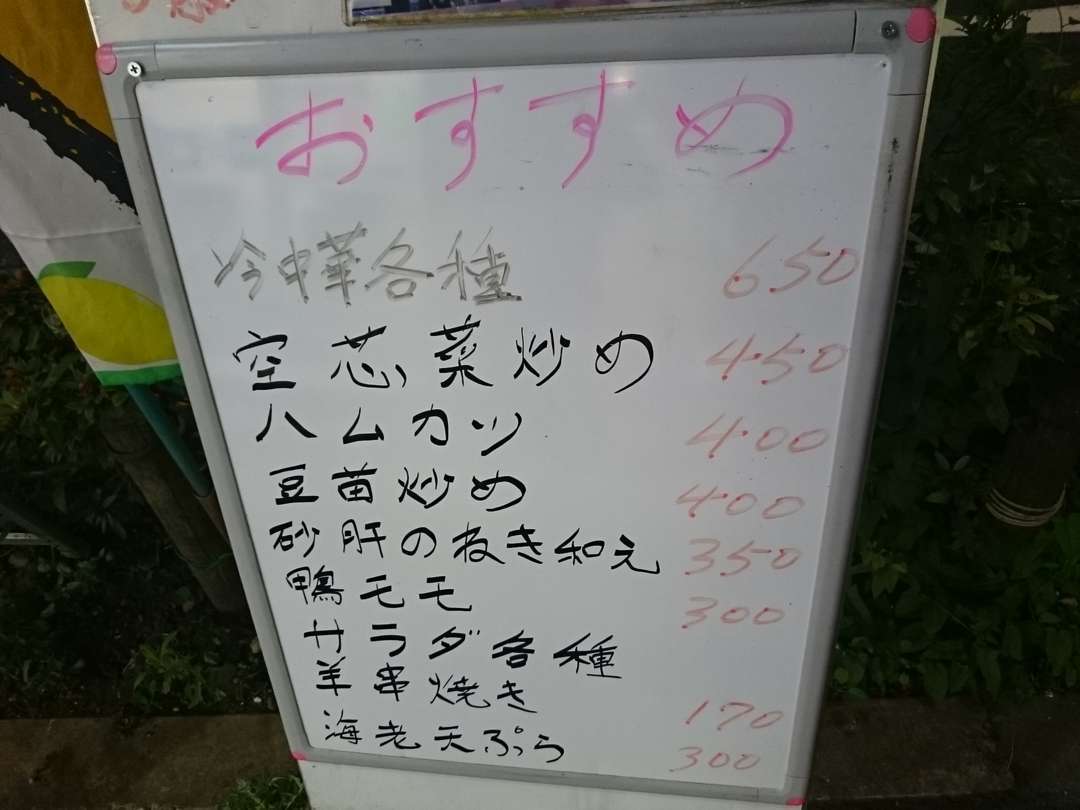 おすすめ
冷中華各種 650
空芯菜炒め 450
ハムカツ 400
豆苗炒め 400
砂肝のねき和え 350
鴨モモ 300
サラダ各種
羊串焼き 170
海老天ぷら 300